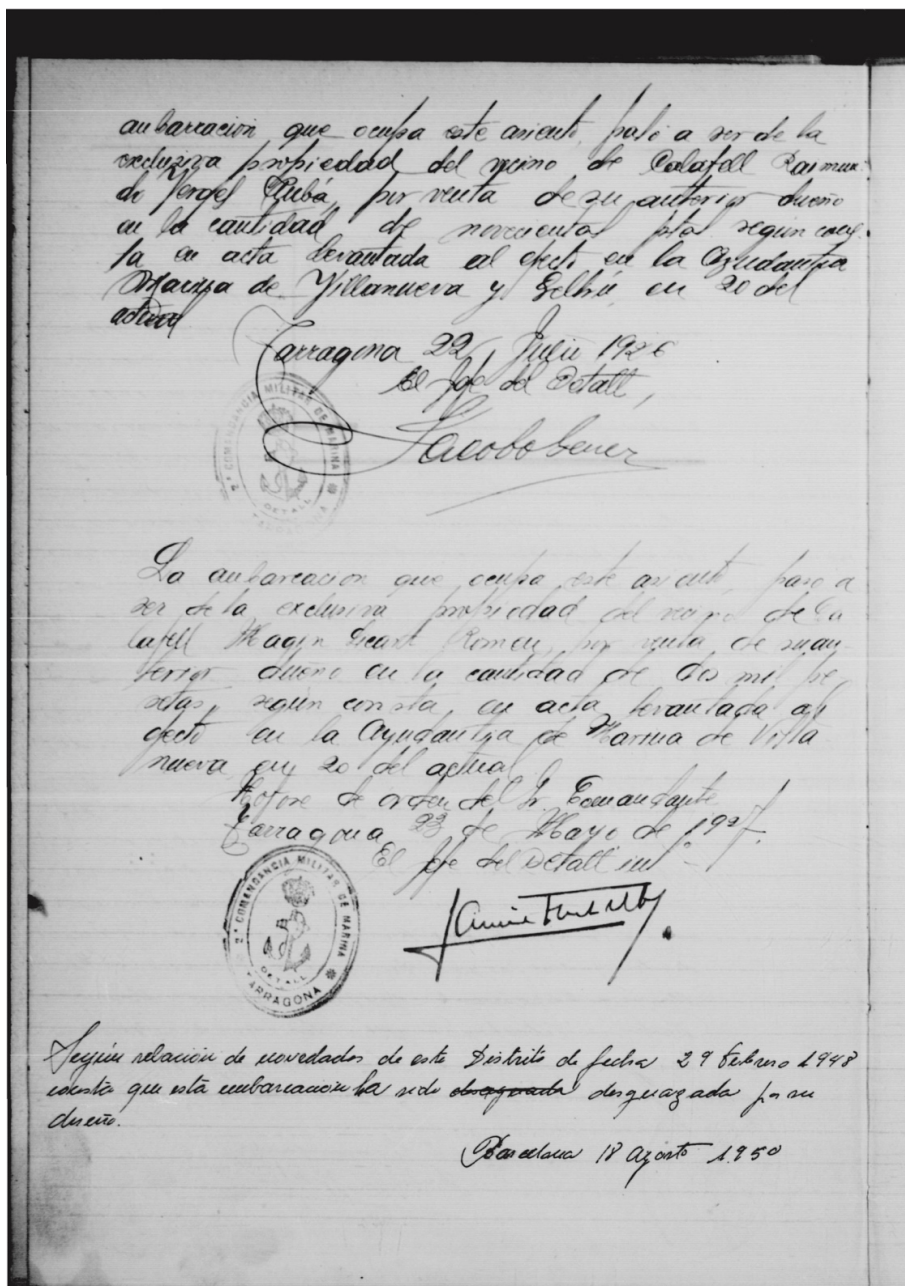 embarcacion que ocupa este asiento, pasó a ser de la
exclusiva propiedad del vecino de Calafell Raimun
do Vergel Rubá, por venta de su anterior dueño
en la cantidad de novecientas ptas según cons
ta en acta levantada al efecto en la Ayudantia
Marina de Villanueva y Geltrú, en 20 del
actual
Tarragona 22, Julio 1926
El Jefe del Detall,
Jacobo Gener
2ª COMANDANCIA MILITAR DE MARINA
DETALL
TARRAGONA
La embarcacion que ocupa este asiento, paso a
ser de la exclusiva propiedad del vecino de Ca
lafell Magin Ricart Romeu, por venta de su an
terior dueño en la cantidad de dos mil pe
setas, según consta, en acta levantada al
efecto en la Ayudantia de Marina de Villa
nueva en 20 del actual
de orden del Sr. Comandante
Tarragona 23 de Mayo de 1927.
El Jefe del Detall int
2ª COMANDANCIA MILITAR DE MARINA
DETALL
TARRAGONA
Según relación de novedades de este Distrito de fecha 29 Febrero 1948
consta que esta embarcación ha sido desguazada por su
dueño.
Barcelona 18 Agosto 1950